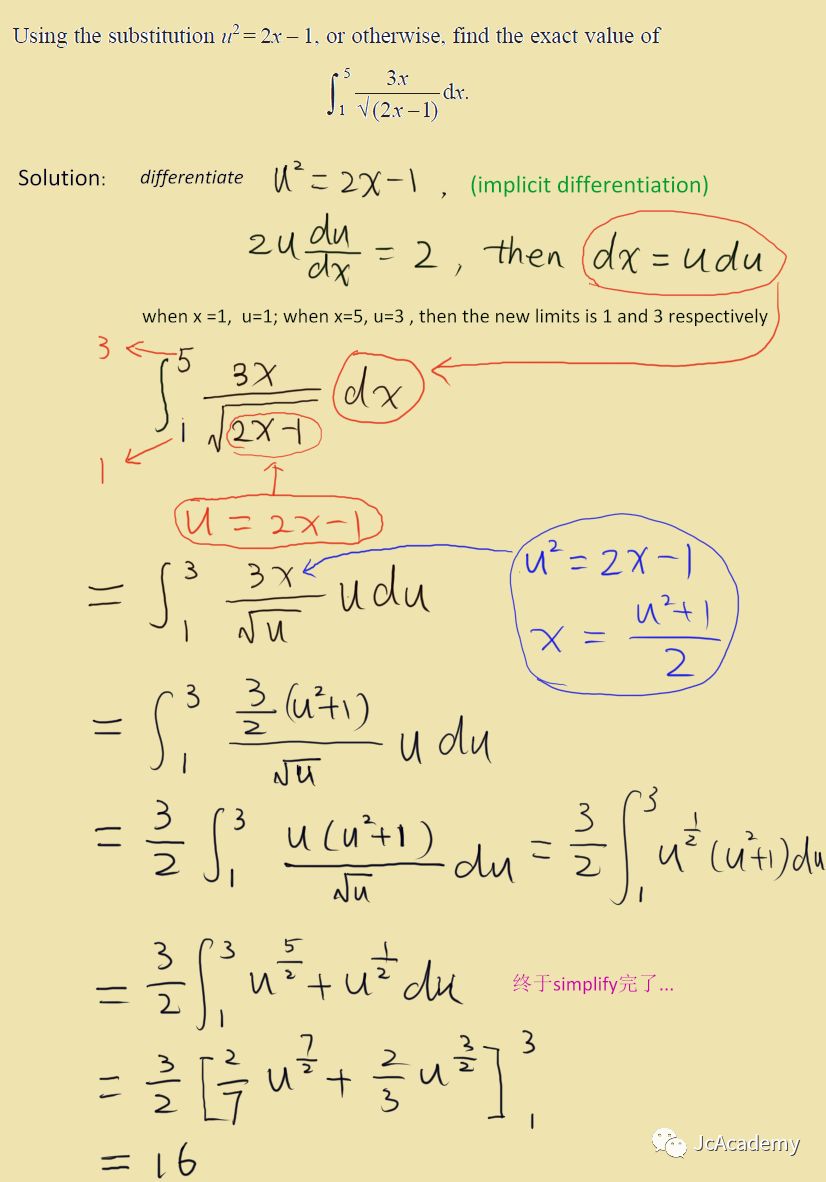 Using the substitution u² = 2x – 1, or otherwise, find the exact value of
∫₁⁵ 3x/√(2x – 1) dx.
Solution: differentiate u² = 2x-1 , (implicit differentiation)
2u du/dx = 2 , then dx = u du
when x =1, u=1; when x=5, u=3 , then the new limits is 1 and 3 respectively
3
∫₁⁵ 3x/√(2x-1) dx
1
u = 2x-1
= ∫₁³ 3x/√u u du
u² = 2x-1
x = (u²+1)/2
= ∫₁³ 3/2 (u²+1)/√u u du
= 3/2 ∫₁³ u(u²+1)/√u du = 3/2 ∫₁³ u^(1/2) (u²+1) du
= 3/2 ∫₁³ u^(5/2) + u^(1/2) du 终于simplify完了...
= 3/2 [2/7 u^(7/2) + 2/3 u^(3/2)]₁³
= 16
JcAcademy